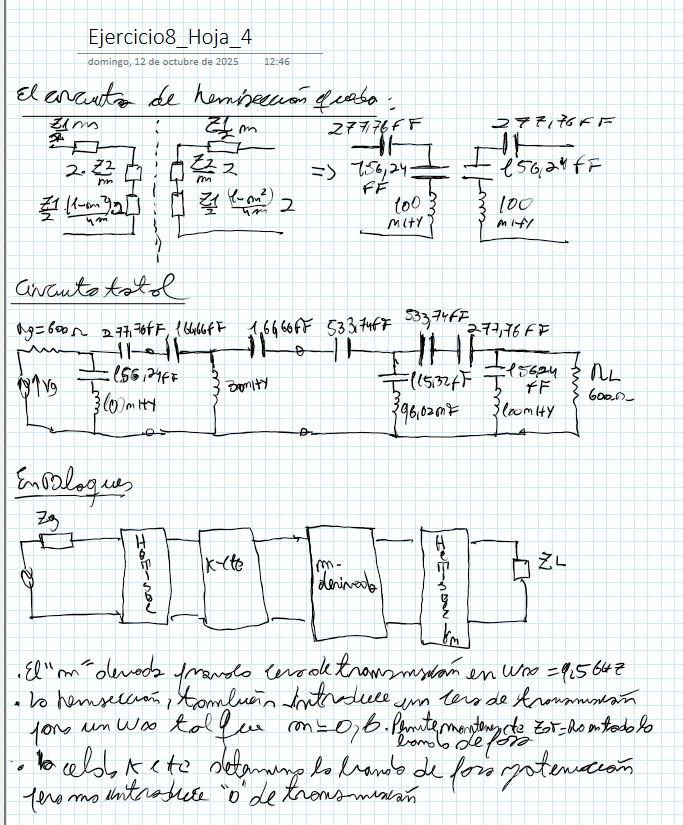 Ejercicio8_Hoja_4
domingo, 12 de octubre de 2025 12:46
El circuito de hemisección queda:
Z1/2 m
Z1/2 m
277,76fF
277,76fF
2. Z2/m
Z2/m 2
=>
156,24 fF
156,24 fF
Z1/2 (1-m²)/4m 2
Z1/2 (1-m²)/4m 2
100 mHy
100 mHy
Circuito total
Rg=600Ω
277,76fF
1,666fF
1,666fF
533,74fF
533,74fF
277,76fF
Vg
156,24fF
100mHy
300mHy
115,32fF
96,02mF
15624 fF
100mHy
RL
600Ω
En Bloques
Zg
Hemisec
K-cte
m-derivado
Hemisec
ZL
.El "m" derivado cero de transmisión en W∞ =
. La hemisección, también introduce un cero de transmisión
para un W∞ tal que m=0,6. Permite mantener cte en todo la
banda de paso
. la celda K cte determina la banda de paso y atenuación
pero no introduce "0" de transmisión